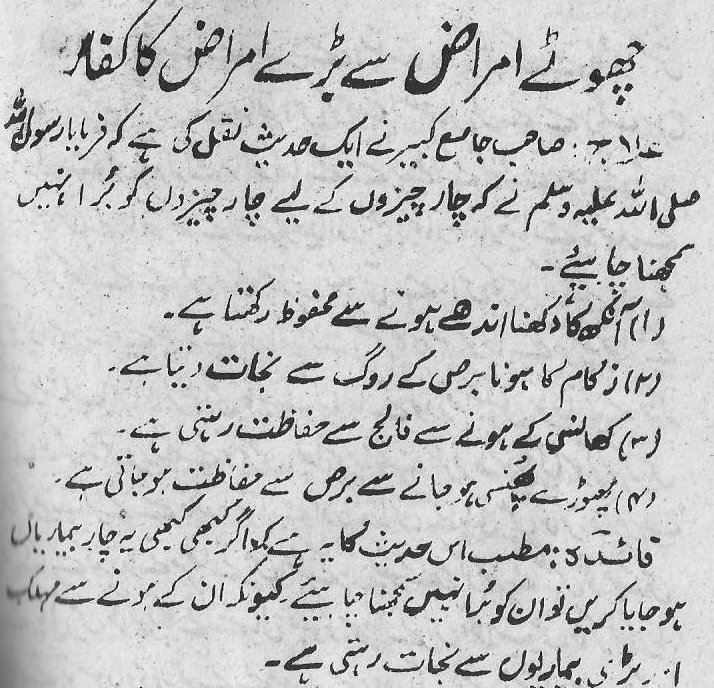 چھوٹے امراض سے بڑے امراض کا کفارہ
علاج: صاحب جامع کبیر نے ایک حدیث نقل کی ہے کہ فرمایا رسول اللہ
صلی اللہ علیہ وسلم نے کہ چار چیزوں کے لیے چار چیزوں کو بُرا نہیں
سمجھنا چاہیئے۔
(۱) آنکھ کا دکھنا اندھے ہونے سے محفوظ رکھتا ہے۔
(۲) زکام کا ہونا برص کے روگ سے نجات دیتا ہے۔
(۳) کھانسی کے ہونے سے فالج سے حفاظت رہتی ہے۔
(۴) پھوڑے پھنسی ہو جانے سے برص سے حفاظت ہو جاتی ہے۔
فائدہ: مطلب اس حدیث کا یہ ہے کہ اگر کبھی کبھی یہ چار بیماریاں
ہو جایا کریں تو ان کو بُرا نہیں سمجھنا چاہیئے کیونکہ ان کے ہونے سے مہلک
اور بڑی بیماریوں سے نجات رہتی ہے۔